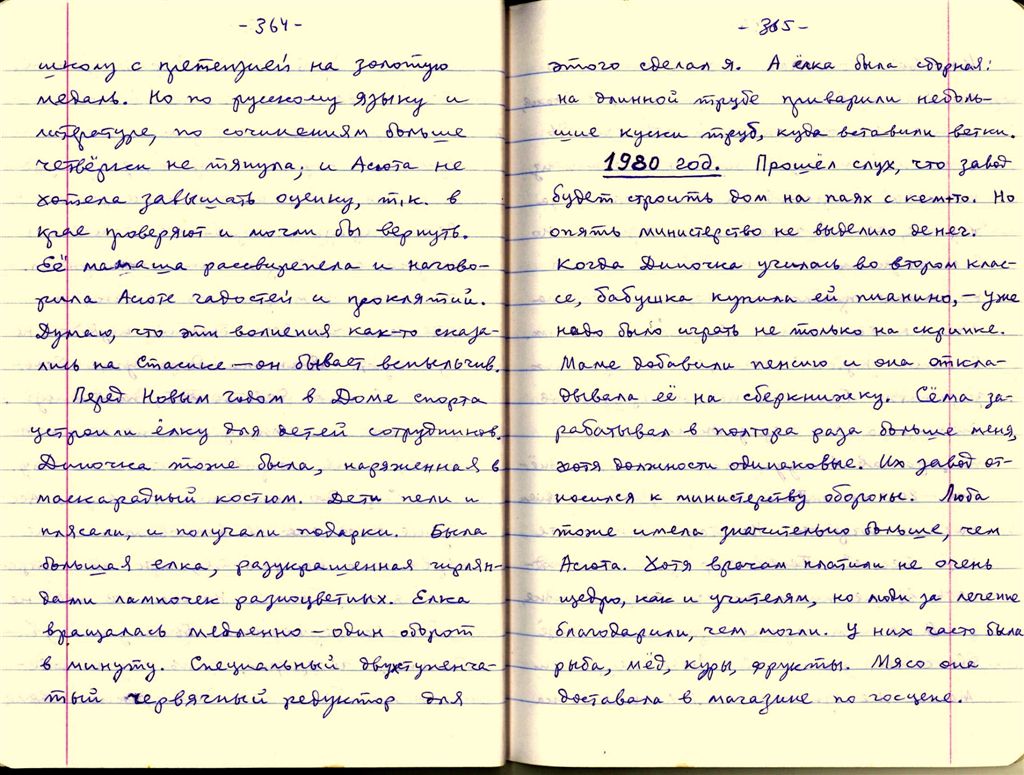 -364-
школу с претензией на золотую
медаль. Но по русскому языку и
литературе, по сочинениям больше
четвёрки не тянула, и Асюта не
хотела завышать оценку, т.к. в
крае проверяют и могли бы вернуть.
Её мамаша рассвирепела и нагово-
рила Асюте гадостей и проклятий.
Думаю, что эти волнения как-то сказа-
лись на Стасике — он бывает вспыльчив.
Перед Новым годом в Доме спорта
устроили ёлку для детей сотрудников.
Диночка тоже была, наряженная в
маскарадный костюм. Дети пели и
плясали, и получали подарки. Была
большая елка, разукрашенная гирлян-
дами лампочек разноцветных. Елка
вращалась медленно — один оборот
в минуту. Специальный двухступенча-
тый червячный редуктор для
-365-
этого сделал я. А ёлка была сборная:
на длинной трубе приварили неболь-
шие куски труб, куда вставили ветки.
1980 год. Прошёл слух, что завод
будет строить дом на паях с кем-то. Но
опять министерство не выделило денег.
Когда Диночка училась во втором клас-
се, бабушка купила ей пианино, — уже
надо было играть не только на скрипке.
Маме добавили пенсию и она откла-
дывала её на сберкнижку. Сёма за-
рабатывал в полтора раза больше меня,
хотя должности одинаковые. Их завод от-
носился к министерству обороны. Люба
тоже имела значительно больше, чем
Асюта. Хотя врачам платили не очень
щедро, как и учителям, но люди за лечение
благодарили, чем могли. У них часто была
рыба, мёд, куры, фрукты. Мясо она
доставала в магазине по госцене.